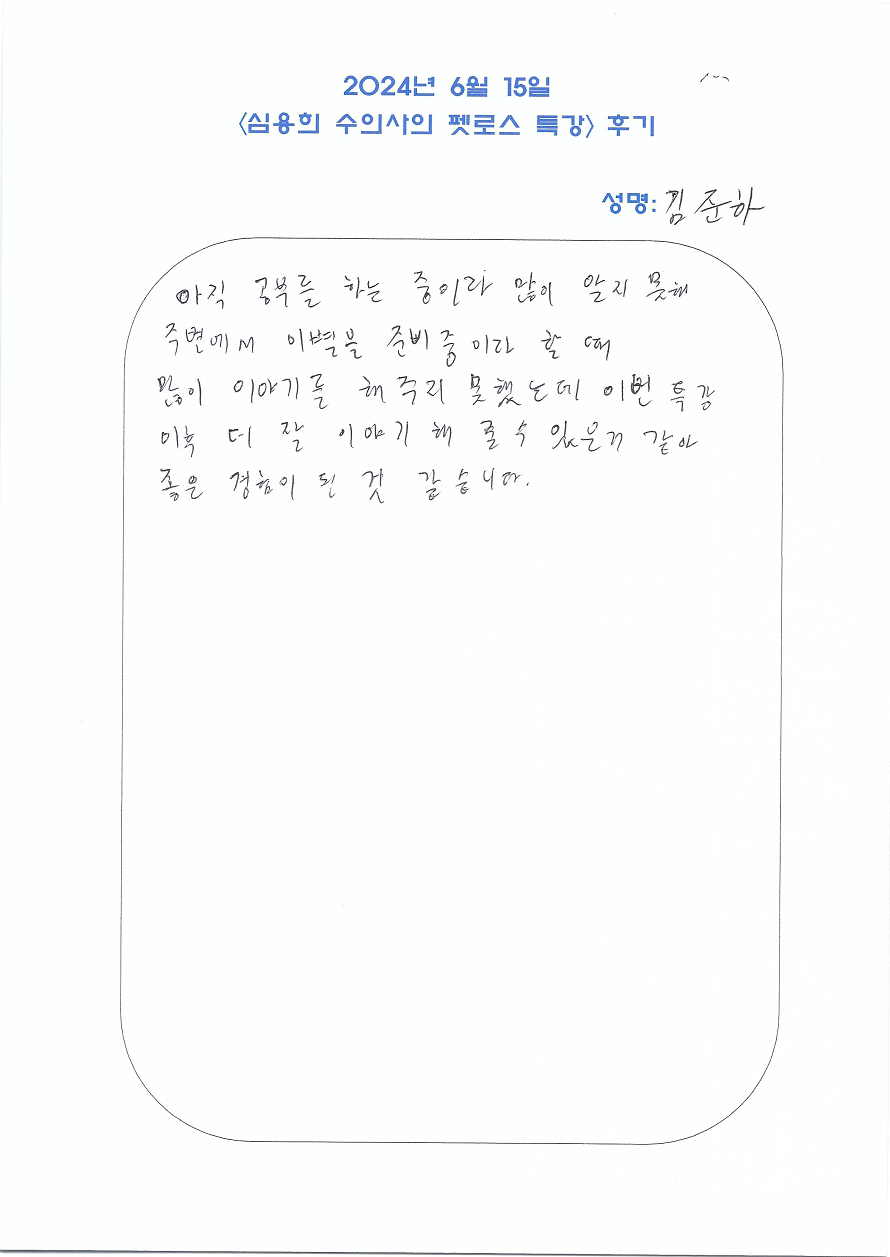 2024년 6월 15일
<심용희 수의사의 펫로스 특강> 후기
성명: 김준하
아직 공부를 하는 중이라 많이 알지 못해
주변에서 이별을 준비중이라 할 때
많이 이야기를 해주지 못했는데 이번 특강
이후 더 잘 이야기 해 줄 수 있을거 같아
좋은 경험이 된 것 같습니다.